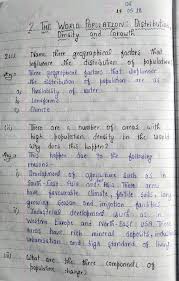 2. The World Population: Distribution,
Density and Growth
Name three geographical factors that
influence the distribution of population.
Three geographical factors that influence
the distribution of population are as :-
a) Availability of water
b) Landforms
c) Climate
(ii) There are a number of areas with
high population density in the world
why does this happen?
This happen due to the following
reasons :-
i) Development of agriculture such as in
South East Asia and Asia. These areas
have favourable climate, fertile soils, long
growing season and irrigation facilities.
ii) Industrial development such as in
Western Europe and North East USA. These
areas have rich mineral deposits, industries
urbanisation and high standard of living.
(iii) What are the three components of
population change?